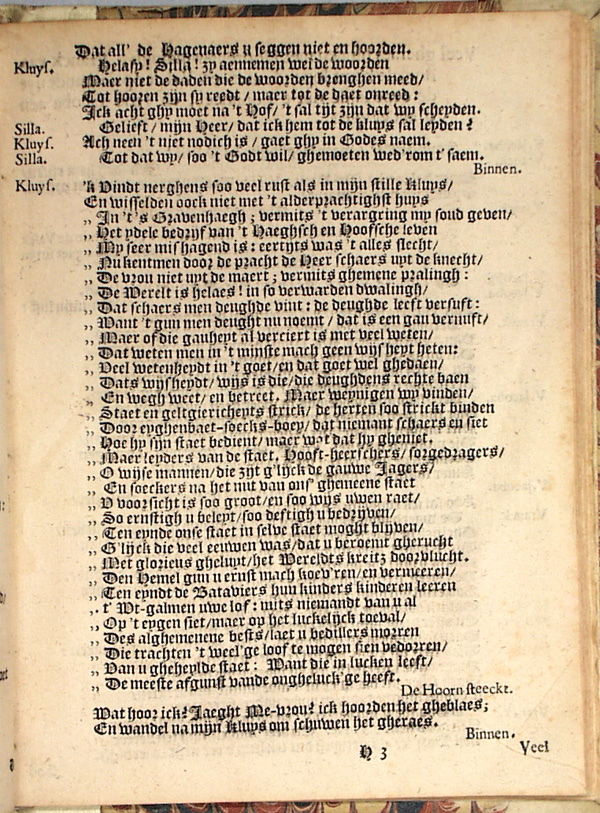 Dat all' de Hagenaers u seggen niet en hoorden.
Kluys. Helasy! Silla! zy aennemen wel de woorden
Maer niet de daden die de woorden brenghen meed/
Tot hooren zijn sy reedt / maer tot de daet onreed:
Ick acht ghy moet na 't Hof/ 't sal tijt zijn dat wy scheyden.
Silla. Gelieft / mijn Heer/ dat ick hem tot de kluys sal leyden?
Kluys. Ach neen 't niet nodich is / gaet ghy in Godes naem.
Silla. Tot dat wy/ soo 't Godt wil/ ghemoeten wed'rom t' saem.
Binnen.
Kluys. 'k Vindt nerghens soo veel rust als in mijn stille Kluys/
En wisselden oock niet met 't alderprachtighst huys
„ In 't 's Gravenhaegh; vermits 't verargring my soud geven/
„ Het ydele bedrijf van 't Haeghsch en Hoofsche leven
„ My seer mishagend is: eertyts was 't alles slecht/
„ Nu kentmen door de pracht de Heer schaers uyt de knecht/
„ De vrou niet uyt de maert; vermits ghemene pralingh:
„ De Werelt is helaes! in so verwarden dwalingh/
„ Dat schaers men deughde vint: de deughde leeft versuft:
„ Want 't gun men deught nu noemt / dat is een gau vernuft/
„ Maer of die gauheyt al verciert is met veel weten/
„ Dat weten men in 't minste mach geen wijsheyt heten:
„ Veel wetenheydt in 't goet/en dat goet wel ghedaen/
„ Dats wijsheydt/ wijs is die/die deughdens rechte baen
„ En wegh weet/ en betreet. Maer weynigen wy vinden/
„ Staet en geltgiericheyts strick/ de herten soo strickt binden
„ Door eyghenbaet-soecks-boey/ dat niemant schaers en siet
„ Hoe hy sijn staet bedient/ maer wat dat hy gheniet.
„ Maer leyders van de staet. Hooft-heerschers/ sorgedragers/
„ O wijse mannen/die zijt g'lijck de gauwe Jagers/
„ En soeckers na het nut van ons' ghemeene staet
„ U voorsicht is soo groot/en soo wijs uwen raet/
„ So ernstigh u beleyt/soo deftigh u bedrijven/
„ Ten eynde onse staet in selve staet moght blijven/
„ G'lijck die veel eeuwen was/dat u beroemt gherucht
„ Met glorieus gheluyt/het Wereldts kreitz doorvlucht.
„ Den Hemel gun u ernst mach koev'ren/en vermeeren/
„ Ten eyndt de Bataviers hun kinders kinderen leeren
„ t' Wt-galmen uwe lof: mits niemandt van u al
„ Op 't eygen siet/maer op het luckelijck toeval/
„ Des alghemenene bests/laet u bedillers morren
„ Die trachten 't weel'ge loof te mogen sien verdorren/
„ Van u gheheylde staet: Want die in lucken leeft/
„ De meeste afgunst vande ongheluck'ge heeft.
De Hoorn steeckt.
Wat hoor ick? Jaeght Me-vrou? ick hoorden het gheblaes;
En wandel na mijn Kluys om schuwen het gheraes.
Binnen.
H 3
Veel